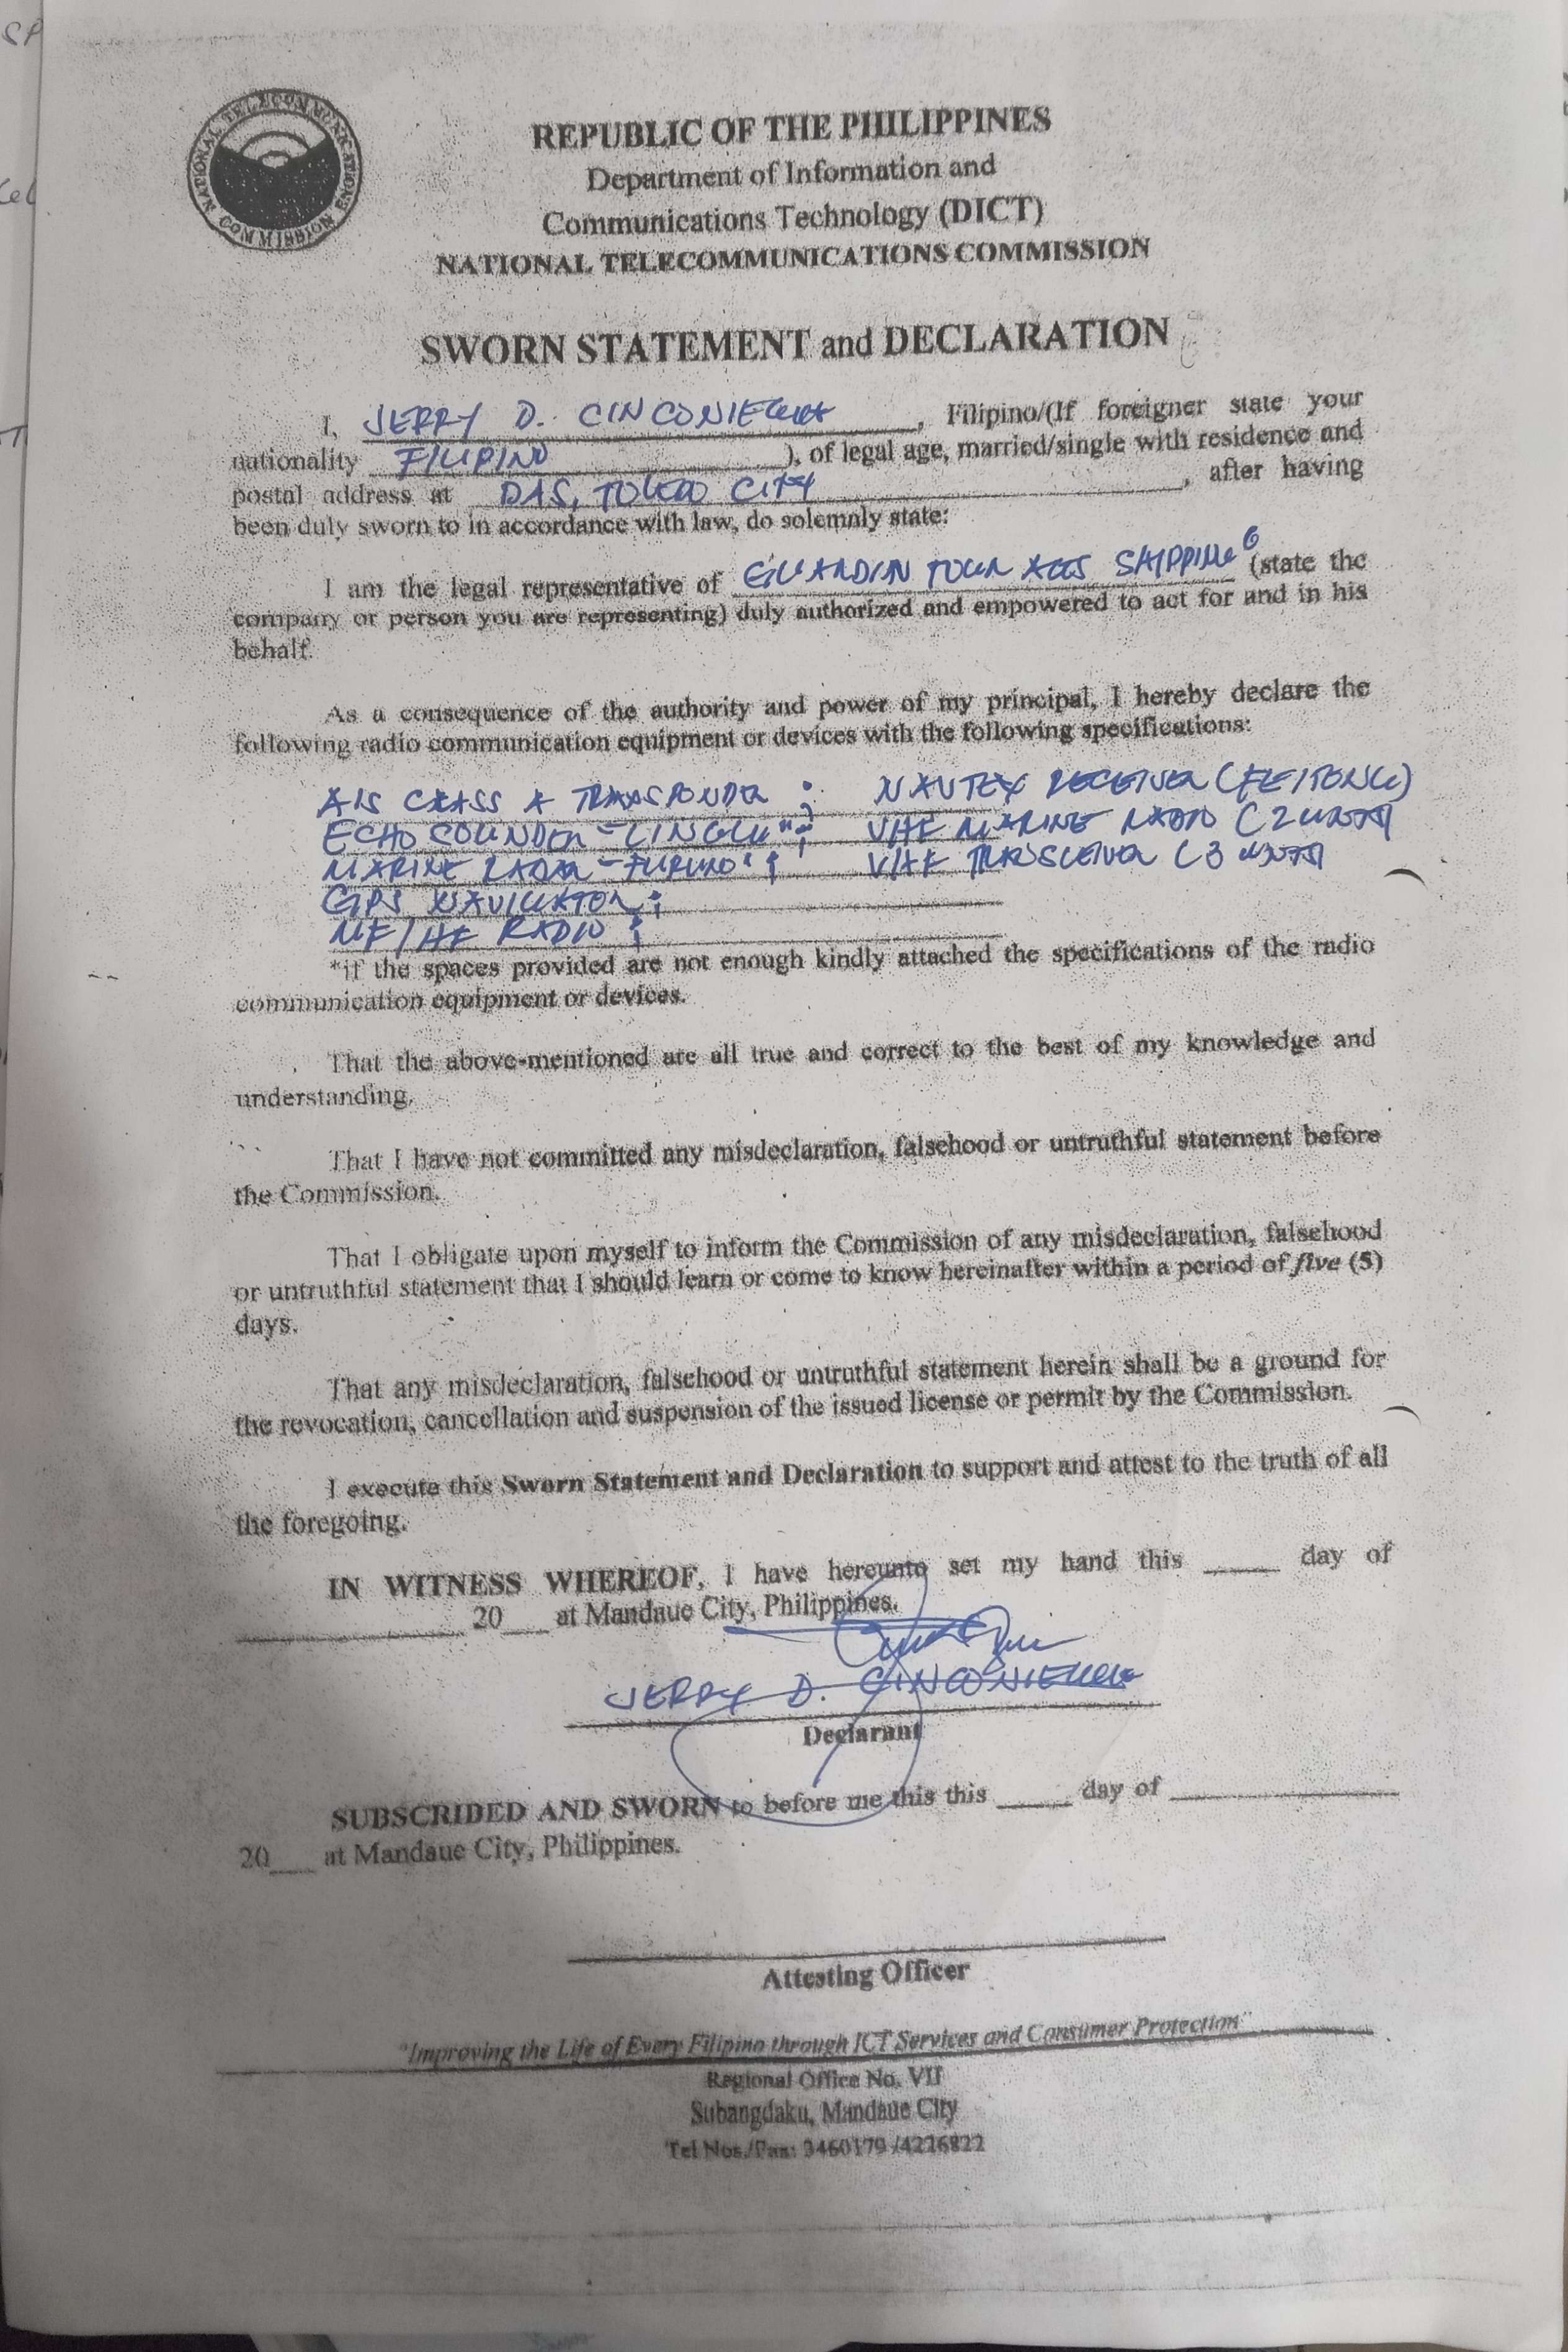 NATIONAL TELECOMMUNICATIONS COMMISSION
REPUBLIC OF THE PHILIPPINES
Department of Information and
Communications Technology (DICT)
NATIONAL TELECOMMUNICATIONS COMMISSION
SWORN STATEMENT and DECLARATION
I, JERRY D. , Filipino/(If foreigner state your
nationality FILIPINO ), of legal age, married/single with residence and
postal address at DAS, TOLEDO CITY , after having
been duly sworn to in accordance with law, do solemnly state:
I am the legal representative of SHIPPING (state the
company or person you are representing) duly authorized and empowered to act for and in his
behalf.
As a consequence of the authority and power of my principal, I hereby declare the
following radio communication equipment or devices with the following specifications:
AIS CLASS A TRANSPONDER ; NAVTEX RECEIVER
ECHO SOUNDER ; VHF MARINE RADIO (2 UNITS)
MARINE RADAR - FURUNO ; VHF TRANSCEIVER (3 UNITS)
GPS NAVIGATOR ;
MF/HF RADIO ;
*if the spaces provided are not enough kindly attached the specifications of the radio
communication equipment or devices.
That the above-mentioned are all true and correct to the best of my knowledge and
understanding.
That I have not committed any misdeclaration, falsehood or untruthful statement before
the Commission.
That I obligate upon myself to inform the Commission of any misdeclaration, falsehood
or untruthful statement that I should learn or come to know hereinafter within a period of five (5)
days.
That any misdeclaration, falsehood or untruthful statement herein shall be a ground for
the revocation, cancellation and suspension of the issued license or permit by the Commission.
I execute this Sworn Statement and Declaration to support and attest to the truth of all
the foregoing.
IN WITNESS WHEREOF, I have hereunto set my hand this ____ day of
____ 20__ at Mandaue City, Philippines.
JERRY D.
Declarant
SUBSCRIDED AND SWORN to before me this this ____ day of ____
20__ at Mandaue City, Philippines.
Attesting Officer
"Improving the Life of Every Filipino through ICT Services and Consumer Protection"
Regional Office No. VII
Subangdaku, Mandaue City
Tel Nos./Fax: 3460179 /4226822